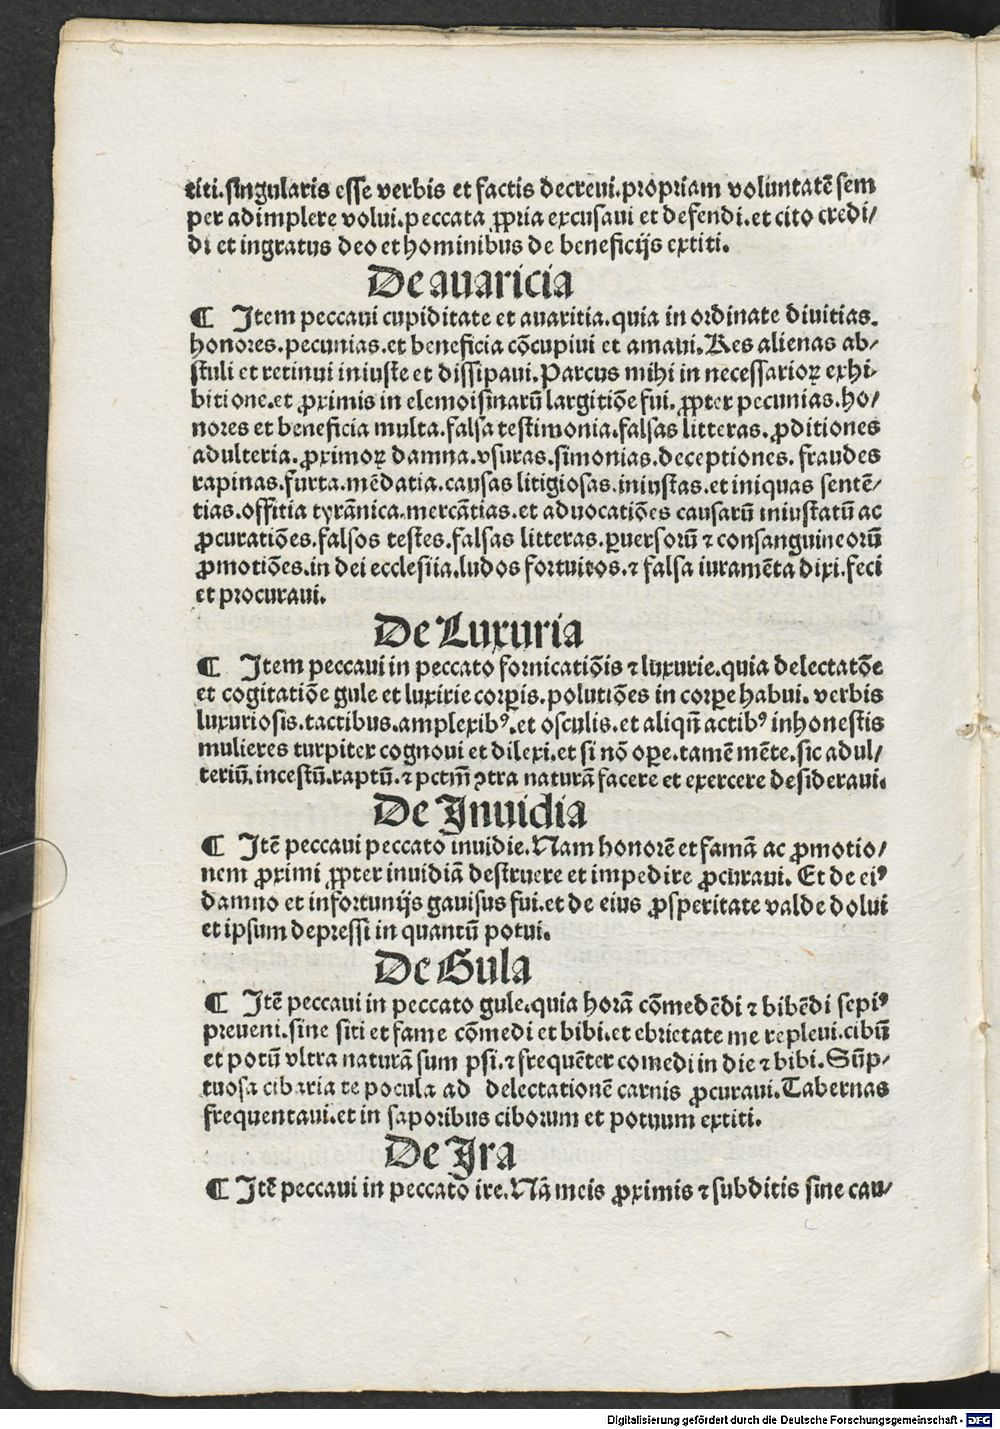 titi.singularis esse verbis et factis decreui.propriam voluntatē sem
per adimplere volui.peccata ꝓpria excusaui et defendi.et cito credi/
di et ingratus deo et hominibus de beneficijs extiti.
De auaricia
¶ Item peccaui cupiditate et auaritia.quia in ordinate diuitias.
honores.pecunias.et beneficia cōcupiui et amaui.Res alienas ab/
stuli et retinui iniuste et dissipaui.Parcus mihi in necessarioꝝ exhi/
bitione.et ꝓximis in elemosinarū largitiōe fui.ꝓpter pecunias.ho/
nores et beneficia multa.falsa testimonia.falsas litteras.ꝓditiones
adulteria.ꝓximoꝝ damna.vsuras.simonias.deceptiones.fraudes
rapinas.furta.mēdatia.causas litigiosas.iniustas.et iniquas sentē/
tias.offitia tyrānica.mercātias.et aduocatiōes causarū iniustatū ac
ꝓcuratiōes.falsos testes.falsas litteras.ꝑuersorū ⁊ consanguineorū
ꝓmotiōes.in dei ecclesiia.ludos fortuitos.⁊ falsa iuramēta dixi.feci
et procuraui.
De Luxuria
¶ Item peccaui in peccato fornicatiōis ⁊ luxurie.quia delectatōe
et cogitatiōe gule et luxirie corꝑis.polutiōes in corꝑe habui.verbis
luxuriosis.tactibus.amplexibꝰ.et osculis.et aliqn̄ actibꝰ inhonestis
mulieres turpiter cognoui et dilexi.et si nō oꝑe.tamē mēte.sic adul/
teriū.incestū.raptū.⁊ pctm̄ ꝯtra naturā facere et exercere desideraui.
De Inuidia
¶ Itē peccaui peccato inuidie.Nam honorē et famā ac ꝓmotio/
nem ꝓximi ꝓpter inuidiā destruere et impedire ꝓcuraui. Et de eiꝰ
damno et infortunijs gauisus fui.et de eius ꝓsperitate valde dolui
et ipsum depressi in quantū potui.
De Gula
¶ Itē peccaui in peccato gule.quia horā cōmedēdi ⁊ bibēdi sepiꝰ
preueni.sine siti et fame cōmedi et bibi.et ebrietate me repleui.cibū
et potū vltra naturā sum psi.⁊ frequēter comedi in die ⁊ bibi.Sūp/
tuosa cibaria te pocula ad delectationē carnis ꝓcuraui.Tabernas
frequentaui.et in saporibus ciborum et potuum extiti.
De Ira
¶ Itē peccaui in peccato ire.Nā meis ꝓximis ⁊ subditis sine cau/
Digitalisierung gefördert durch die Deutsche Forschungsgemeinschaft - DFG